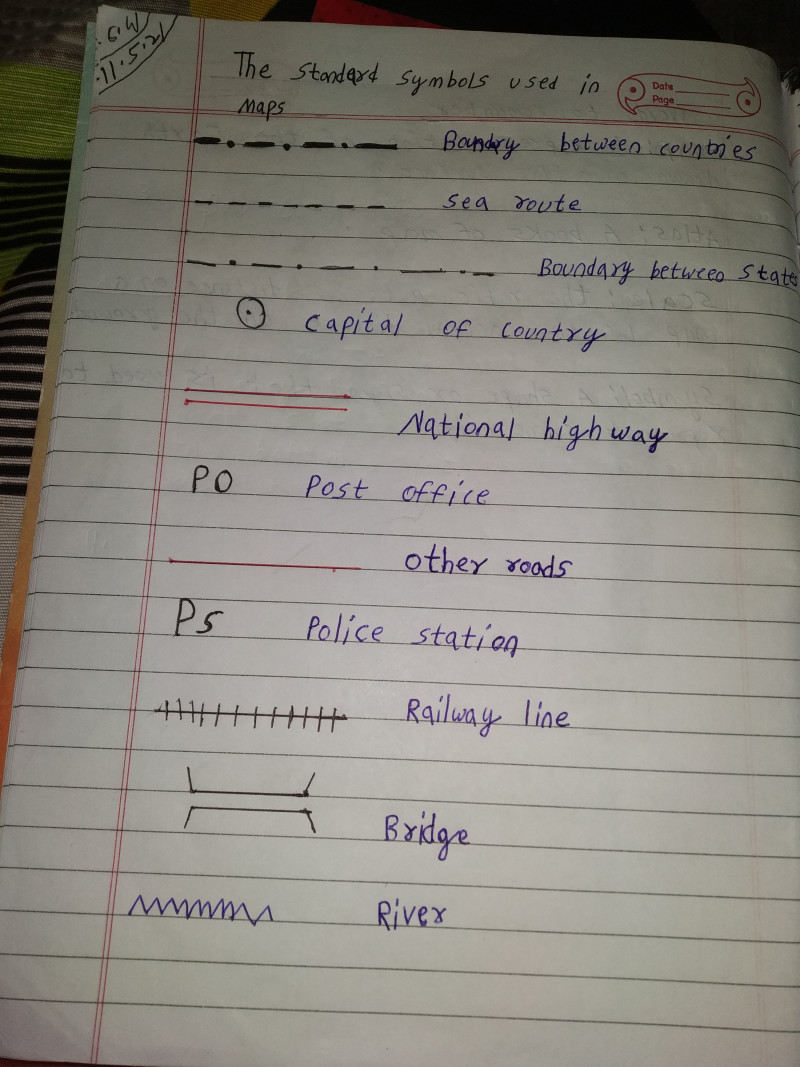 C.W
11.5.21
The standard symbols used in
Maps
Date
Page
Boundry between countries
sea route
Boundary between states
Capital of country
National highway
PO Post office
other roads
PS Police station
Railway line
Bridge
River